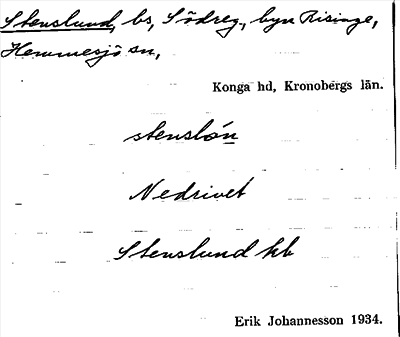 Stenslund, bs, Södreg., byn Risinge,
Hemmesjö sn,
Konga hd, Kronobergs län.
stenslón
Nedrivet
Stenslund kb
Erik Johannesson 1934.